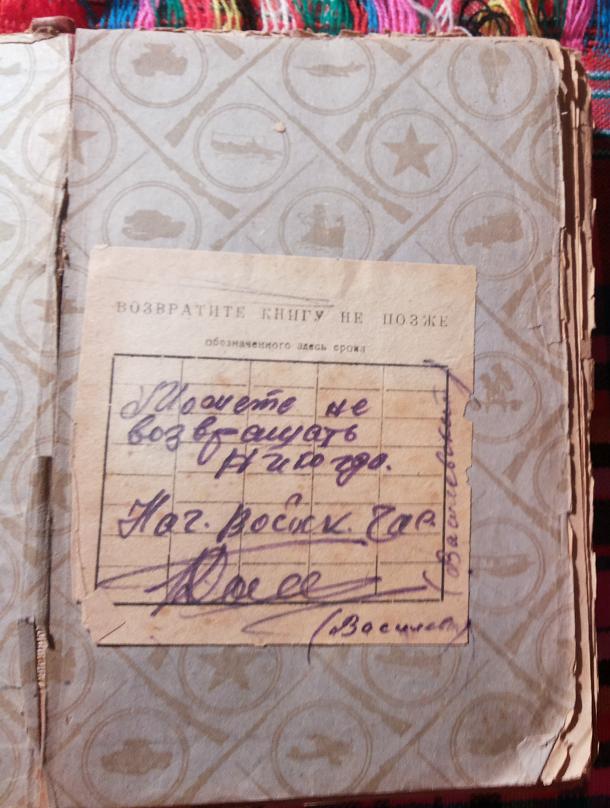 ВОЗВРАТИТЕ КНИГУ НЕ ПОЗЖЕ
обозначенного здесь срока
Можете не
возвращать
никогда.
Нач. Войск. Час.
(Василевский)
(Василевс